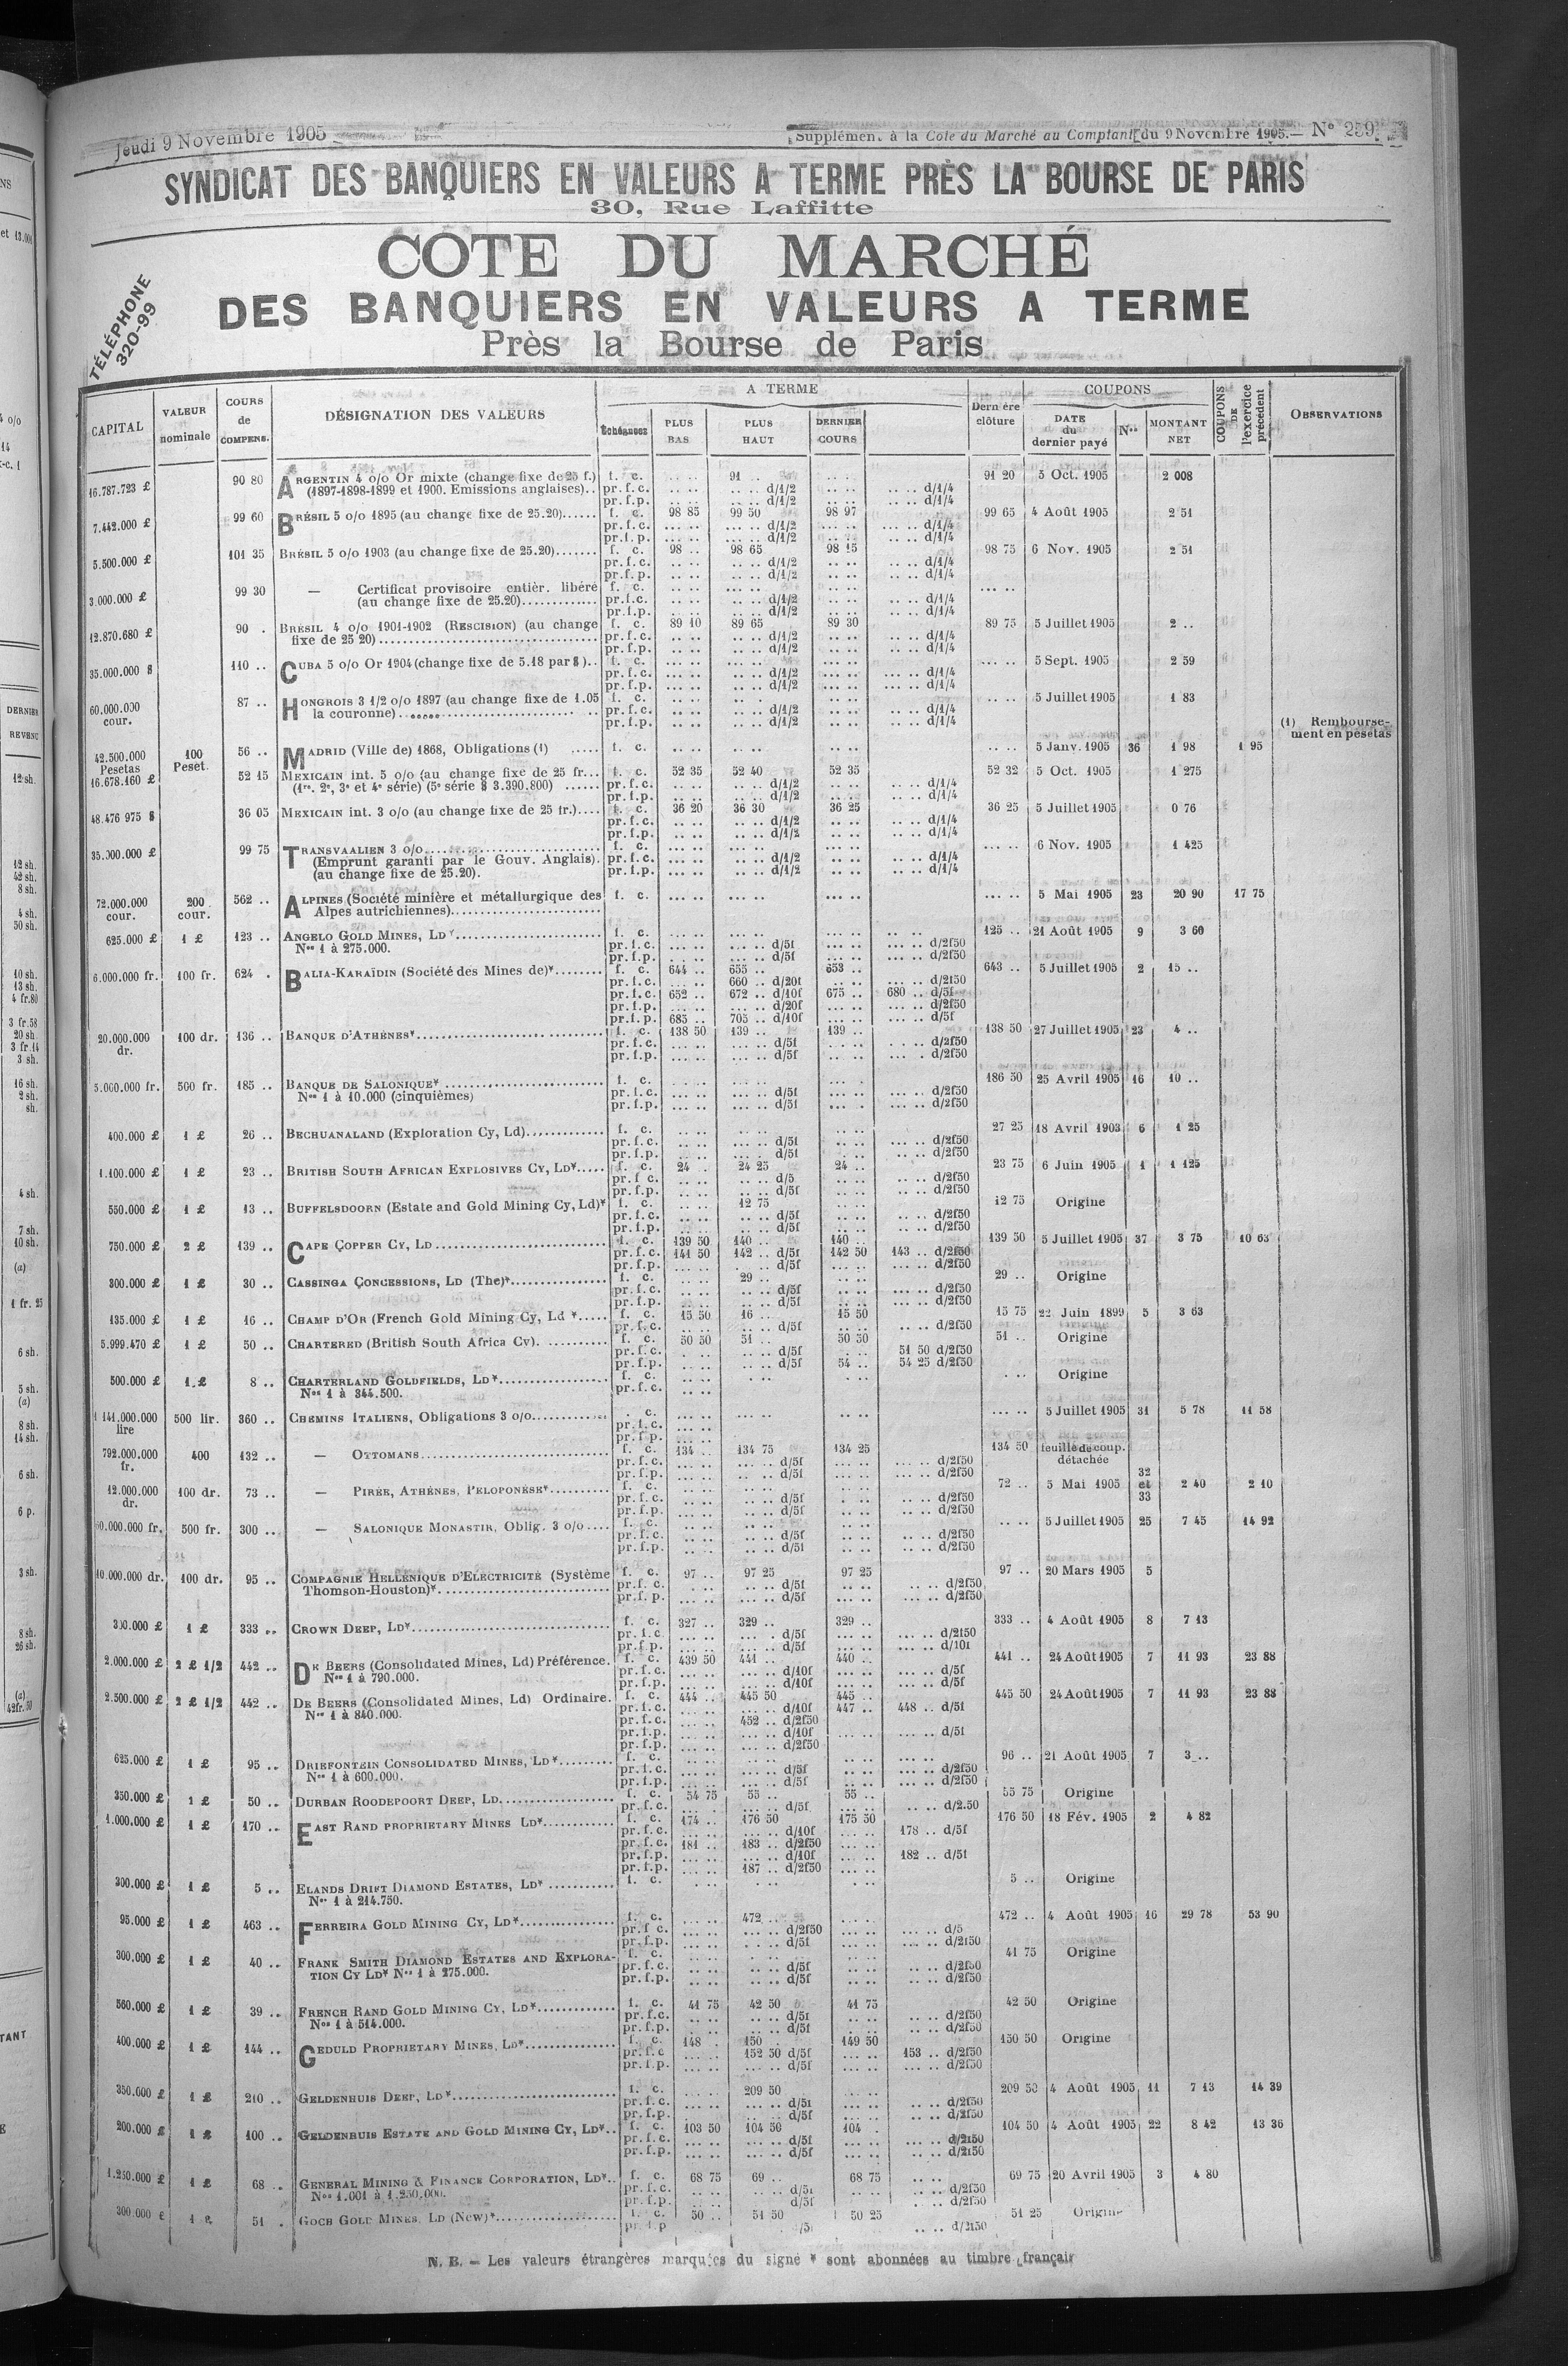 Jeudi 9 Novembre 1905
Supplémen. à la Cote du Marché au Comptant du 9 Novembre 1905.— N° 259
SYNDICAT DES BANQUIERS EN VALEURS A TERME PRÈS LA BOURSE DE PARIS
30, Rue Laffitte
COTE DU MARCHÉ
DES BANQUIERS EN VALEURS A TERME
Près la Bourse de Paris
TÉLÉPHONE
320-99
CAPITAL | VALEUR nominale | COURS de COMPENS. | DÉSIGNATION DES VALEURS | A TERME | Échéances | PLUS BAS | PLUS HAUT | DERNIER COURS | Dernère clôture | COUPONS | DATE du dernier payé | Nos | MONTANT NET | COUPONS DE l'exercice précédent | OBSERVATIONS
16.787.723 £ 90 80 ARGENTIN 4 o/o Or mixte (change fixe de 25 f.) f. c. .. .. 91 .. .. .. 91 20 5 Oct. 1905 2 008
(1897-1898-1899 et 1900. Emissions anglaises).. pr. f. c. .. .. .. .. d/1/2 .. .. .. .. d/1/4
pr. f. p. .. .. .. .. d/1/2 .. .. .. .. d/1/4
7.442.000 £ 99 60 BRÉSIL 5 o/o 1895 (au change fixe de 25.20)...... f. c. 98 85 99 50 98 97 99 65 4 Août 1905 2 51
pr. f. c. ... .. ... .. d/1/2 .. .. ... .. d/1/4
pr. f. p. ... .. ... .. d/1/2 .. .. ... .. d/1/4
5.500.000 £ 101 35 BRÉSIL 5 o/o 1903 (au change fixe de 25.20)....... f. c. 98 .. 98 65 98 15 98 75 6 Nov. 1905 2 51
pr. f. c. .. .. .. .. d/1/2 .. .. .. .. d/1/4
pr. f. p. .. .. .. .. d/1/2 .. .. .. .. d/1/4
3.000.000 £ 99 30 — Certificat provisoire entièr. libéré f. c. .. .. ... .. .. .. ... ..
(au change fixe de 25.20)............. pr. f. c. .. .. .. .. d/1/2 .. .. .. .. d/1/4
pr. f. p. .. .. .. .. d/1/2 .. .. .. .. d/1/4
12.870.680 £ 90 . BRÉSIL 4 o/o 1901-1902 (RESCISION) (au change f. c. 89 10 89 65 89 30 89 75 5 Juillet 1905 2 ..
fixe de 25 20)..................................... pr. f. c. .. .. .. .. d/1/2 .. .. .. .. d/1/4
pr. f. p. .. .. .. .. d/1/2 .. .. .. .. d/1/4
35.000.000 $ 110 .. CUBA 5 o/o Or 1904 (change fixe de 5.18 par $).. f. c. ... .. ... .. ... .. ... .. 5 Sept. 1905 2 59
pr. f. c. ... .. ... .. d/1/2 ... .. ... .. d/1/4
pr. f. p. ... .. .. .. d/1/2 ... .. ... .. d/1/4
60.000.000 87 .. HONGROIS 3 1/2 o/o 1897 (au change fixe de 1.05 f. c. .. .. .. .. .. .. .. .. 5 Juillet 1905 1 83
cour. la couronne)................................ pr. f. c. .. .. .. .. d/1/2 .. .. .. .. d/1/4
pr. f. p. .. .. .. .. d/1/2 .. .. .. .. d/1/4
(1) Rembourse-
ment en pesetas
42.500.000 100 56 .. MADRID (Ville de) 1868, Obligations (1) ..... f. c. .. .. .. .. .. .. .. .. 5 Janv. 1905 36 1 98 1 95
Pesetas Peset.
16.678.160 £ 52 15 MEXICAIN int. 5 o/o (au change fixe de 25 fr... f. c. 52 35 52 40 52 35 52 32 5 Oct. 1905 1 275
(1re. 2e, 3e et 4e série) (5e série $ 3.390.800) ...... pr. f. c. .. .. .. .. d/1/2 .. .. .. .. d/1/4
pr. f. p. .. .. .. .. d/1/2 .. .. .. .. d/1/4
48.476 975 $ 36 05 MEXICAIN int. 3 o/o (au change fixe de 25 fr.).... f. c. 36 20 36 30 36 25 36 25 5 Juillet 1905 0 76
pr. f. c. .. .. .. .. d/1/2 .. .. .. .. d/1/4
pr. f. p. .. .. .. .. d/1/2 .. .. .. .. d/1/4
35.000.000 £ 99 75 TRANSVAALIEN 3 o/o.............................. f. c. ... .. ... .. ... .. ... .. 6 Nov. 1905 1 425
(Emprunt garanti par le Gouv. Anglais). pr. f. c. ... .. ... .. d/1/2 ... .. .. .. d/1/4
(au change fixe de 25.20). pr. f. p. ... .. ... .. d/1/2 ... .. .. .. d/1/4
72.000.000 200 562 .. ALPINES (Société minière et métallurgique des f. c. ... .. ... .. ... .. ... .. 5 Mai 1905 23 20 90 17 75
cour. cour. Alpes autrichiennes).........................
625.000 £ 1 £ 123 .. ANGELO GOLD MINES, LD*........................ f. c. ... .. ... .. ... .. 125 .. 21 Août 1905 9 3 60
Nos 1 à 275.000. pr. f. c. ... .. ... .. d/5f ... .. ... .. d/2f50
pr. f. p. ... .. ... .. d/5f ... .. ... .. d/2f50
6.000.000 fr. 100 fr. 624 . BALIA-KARAÏDIN (Société des Mines de)*........ f. c. 644 .. 655 .. 653 .. 643 .. 5 Juillet 1905 2 15 ..
pr. f. c. ... .. 660 .. d/20f .. .. ... .. d/2f50
pr. f. c. 652 .. 672 .. d/10f 675 .. 680 .. d/5f
pr. f. p. ... .. ... .. d/20f ... .. ... .. d/2f50
pr. f. p. 685 .. 705 .. d/10f ... .. ... .. d/5f
20.000.000 100 dr. 136 .. BANQUE D'ATHÈNES*............................. f. c. 138 50 139 .. 139 .. 138 50 27 Juillet 1905 23 4 ..
dr. pr. f. c. ... .. ... .. d/5f ... .. ... .. d/2f50
pr. f. p. ... .. ... .. d/5f ... .. ... .. d/2f50
5.000.000 fr. 500 fr. 185 .. BANQUE DE SALONIQUE* .......................... f. c. ... .. ... .. ... . 186 50 25 Avril 1905 16 10 ..
Nos 1 à 10.000 (cinquièmes) pr. f. c. ... .. ... .. d/5f ... . ... .. d/2f50
pr. f. p. ... .. ... .. d/5f ... . ... .. d/2f50
400.000 £ 1 £ 26 .. BECHUANALAND (Exploration Cy, Ld)............. f. c. .. .. .. .. .. .. 27 25 18 Avril 1903 6 1 25
pr. f. c. .. .. ... .. d/5f .. .. ... .. d/2f50
pr. f. p. .. .. .. .. d/5f .. .. .. .. d/2f50
1.100.000 £ 1 £ 23 .. BRITISH SOUTH AFRICAN EXPLOSIVES CY, LD*..... f. c. 24 .. 24 25 24 .. 23 75 6 Juin 1905 1 1 125
pr. f. c. .. .. .. .. d/5 .. .. .. .. d/2f50
pr. f. p. .. .. .. .. d/5f .. .. .. .. d/2f50
550.000 £ 1 £ 13 .. BUFFELSDOORN (Estate and Gold Mining Cy, Ld)* f. c. .. .. 12 75 .. .. 12 75 Origine
pr. f. c. .. .. .. .. d/5f .. .. .. .. d/2f50
pr. f. p. .. .. .. .. d/5f .. .. .. .. d/2f50
750.000 £ 2 £ 139 .. CAPE COPPER CY, LD ............................ f. c. 139 50 140 .. 140 .. 139 50 5 Juillet 1905 37 3 75 10 63
pr. f. c. 141 50 142 .. d/5f 142 50 143 .. d/2f50
pr. f. p. .. .. . .. d/5f .. .. .. .. d/2f50
300.000 £ 1 £ 30 .. CASSINGA CONCESSIONS, LD (The)*................ f. c. .. .. 29 .. .. .. 29 .. Origine
pr. f. c. .. .. .. .. d/5f .. .. .. .. d/2f50
pr. f. p. .. .. .. .. d/5f .. .. .. .. d/2f50
135.000 £ 1 £ 16 .. CHAMP D'OR (French Gold Mining Cy, Ld *..... f. c. 15 50 16 .. 15 50 15 75 22 Juin 1899 5 3 63
pr. f. c. .. .. .. .. d/5f .. .. .. .. d/2f50
5.999.470 £ 1 £ 50 .. CHARTERED (British South Africa Cy). .......... f. c. 50 50 51 .. 50 50 51 .. Origine
pr. f. c. . .. . .. d/5f . .. 51 50 d/2f50
pr. f. p. . .. .. .. d/5f 54 .. 54 25 d/2f50
500.000 £ 1 £ 8 .. CHARTERLAND GOLDFIELDS, LD*.................. f. c. .. .. . .. . .. . .. Origine
Nos 1 à 344.500. pr. f. c. .. ..
1 141.000.000 500 lir. 360 .. CHEMINS ITALIENS, Obligations 3 o/o............. . c. ... .. ... .. .. .. ... .. 5 Juillet 1905 31 5 78 11 58
lire pr. f. c. ... ..
pr. f. p. ... ..
792.000.000 400 132 .. — OTTOMANS............................... f. c. 134 .. 134 75 134 25 134 50 feuille de coup.
fr. détachée
pr. f. c. ... .. ... .. d/5f ... .. ... .. d/2f50
pr. f. p. ... .. ... .. d/5f ... .. ... .. d/2f50
12.000.000 100 dr. 73 .. — PIRÉE, ATHÈNES, PELOPONÈSE*.......... f. c. .. .. .. .. . .. 72 .. 5 Mai 1905 32 et 33 2 40 2 10
dr. pr. f. c. .. .. .. .. d/5f . .. .. .. d/2f50
pr. f. p. .. .. .. .. d/5f .. .. .. .. d/2f50
60.000.000 fr. 500 fr. 300 .. — SALONIQUE MONASTIR, Oblig. 3 o/o.... f. c. .. .. .. .. .. .. .. .. 5 Juillet 1905 25 7 45 14 92
pr. f. c. .. .. .. .. d/5f .. .. .. .. d/2f50
pr. f. p. .. .. .. .. d/5f .. .. .. .. d/2f50
10.000.000 dr. 100 dr. 95 .. COMPAGNIE HELLÉNIQUE D'ELECTRICITÉ (Système f. c. 97 .. 97 25 97 25 97 .. 20 Mars 1905 5
Thomson-Houston)*............................ pr. f. c. .. .. .. .. d/5f .. .. .. .. d/2f50
pr. f. p. .. .. .. .. d/5f .. .. .. .. d/2f50
300.000 £ 1 £ 333 .. CROWN DEEP, LD*................................ f. c. 327 .. 329 .. 329 .. 333 .. 4 Août 1905 8 7 13
pr. f. c. ... .. ... . d/5f ... .. ... .. d/2f50
pr. f. p. ... .. ... .. d/5f ... .. ... .. d/10f
2.000.000 £ 2 £ 1/2 442 .. DE BEERS (Consolidated Mines, Ld) Préférence. f. c. 439 50 441 .. 440 .. 441 .. 24 Août 1905 7 11 93 23 88
Nos 1 à 790.000. pr. f. c. ... .. ... .. d/10f ... .. ... .. d/5f
pr. f. p. ... .. ... .. d/10f ... .. ... .. d/5f
2.500.000 £ 2 £ 1/2 442 .. DE BEERS (Consolidated Mines, Ld) Ordinaire. f. c. 444 .. 445 50 445 .. 445 50 24 Août 1905 7 11 93 23 88
Nos 1 à 840.000. pr. f. c. ... .. ... .. d/10f 447 .. 448 .. d/5f
pr. f. c. ... .. 452 .. d/2f50
pr. f. p. ... .. ... .. d/10f ... .. ... .. d/5f
pr. f. p. ... .. ... .. d/2f50
625.000 £ 1 £ 95 .. DRIEFONTEIN CONSOLIDATED MINES, LD*......... f. c. .. .. .. .. ... .. 96 .. 21 Août 1905 7 3 ..
Nos 1 à 600.000. pr. f. c. .. .. ... .. d/5f .. .. ... .. d/2f50
pr. f. p. .. .. ... .. d/5f .. .. ... .. d/2f50
350.000 £ 1 £ 50 .. DURBAN ROODEPOORT DEEP, LD................... f. c. 54 75 55 .. 55 .. 55 75 Origine
pr. f. c. ... . ... .. d/5f ... .. .. .. d/2.50
1.000.000 £ 1 £ 170 .. EAST RAND PROPRIETARY MINES LD*............ f. c. 174 .. 176 50 175 50 176 50 18 Fév. 1905 2 4 82
pr. f. c. ... .. ... .. d/10f ... .. 178 .. d/5f
pr. f. c. 181 .. 183 .. d/2f50 ... ..
pr. f. p. ... .. ... .. d/10f ... .. 182 .. d/5f
pr. f. p. ... .. 187 .. d/2f50 ... ..
300.000 £ 1 £ 5 .. ELANDS DRIFT DIAMOND ESTATES, LD* ........... f. c. . .. . .. . .. 5 .. Origine
Nos 1 à 214.750.
95.000 £ 1 £ 463 .. FERREIRA GOLD MINING CY, LD*................ f. c. ... .. 472 .. ... .. 472 .. 4 Août 1905 16 29 78 53 90
pr. f. c. ... .. ... .. d/2f50 ... .. ... .. d/5
pr. f. p. ... .. ... .. d/5f ... .. ... .. d/2f50
300.000 £ 1 £ 40 .. FRANK SMITH DIAMOND ESTATES AND EXPLORA- f. c. .. .. . .. .. .. 41 75 Origine
TION CY LD* Nos 1 à 275.000. pr. f. c. .. .. .. .. d/5f .. .. .. .. d/2f50
pr. f. p. .. .. .. .. d/5f .. .. .. .. d/2f50
560.000 £ 1 £ 39 .. FRENCH RAND GOLD MINING CY, LD*............. f. c. 41 75 42 50 41 75 42 50 Origine
Nos 1 à 514.000. pr. f. c. .. .. .. .. d/5f .. .. .. .. d/2f50
pr. f. p. .. .. .. .. d/5f .. .. .. .. d/2f50
400.000 £ 1 £ 144 .. GEDULD PROPRIETARY MINES, LD*............... f. c. 148 . 150 . 149 50 150 50 Origine
pr. f. c ... .. 152 50 d/5f ... .. 153 .. d/2f50
pr. f. p. ... .. ... .. d/5f ... .. ... .. d/2f50
350.000 £ 1 £ 210 .. GELDENHUIS DEEP, LD*.......................... f. c. ... .. 209 50 ... .. 209 50 4 Août 1905 11 7 13 14 39
pr. f. c. ... .. ... .. d/5f ... .. ... .. d/2f50
pr. f. p. ... .. ... .. d/5f ... .. ... .. d/2f50
200.000 £ 1 £ 100 .. GELDENHUIS ESTATE AND GOLD MINING CY, LD*.. f. c. 103 50 104 50 104 . 104 50 4 Août 1905 22 8 42 13 36
pr. f. c. ... .. ... .. d/5f ... .. ... .. d/2f50
pr. f. p. ... .. ... .. d/5f ... .. ... .. d/2f50
1.250.000 £ 1 £ 68 .. GENERAL MINING & FINANCE CORPORATION, LD*.. f. c. 68 75 69 .. 68 75 69 75 20 Avril 1905 3 4 80
Nos 1.001 à 1.250.000. pr. f. c. .. .. .. .. d/5f .. .. .. .. d/2f50
pr. f. p. .. .. d/5f . .. d/2f50
300.000 £ 1 £ 51 . GOCH GOLD MINES, LD (New)*.................... f. c. 50 .. 51 50 50 25 51 25 Origine
pr. f. p .. .. d/2f50
N. B. — Les valeurs étrangères marquées du signe * sont abonnées au timbre français